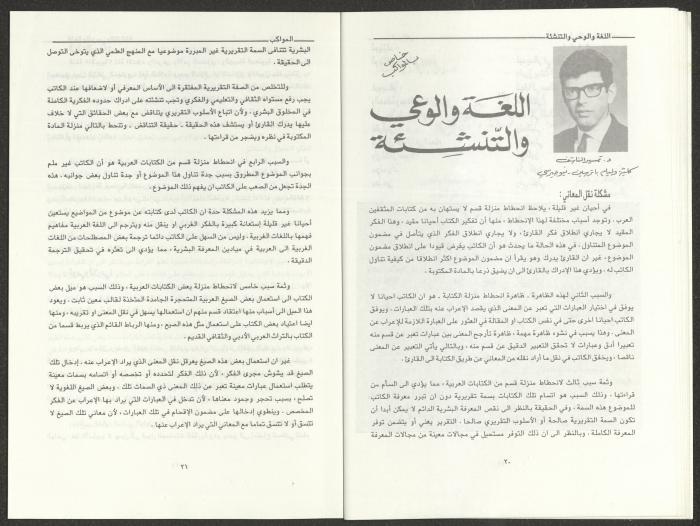 اللغة والوحي والتنشئة
خاص
بالمواكب
اللغة والوعي
والتنشئة
د. تيسير الناشف
كلية وليام باترسون - نيو جيرسي
مشكلة نقل المعاني :
في أحيان غير قليلة ، يلاحظ انحطاط منزلة قسم لا يستهان به من كتابات المثقفين
العرب . وتوجد أسباب مختلفة لهذا الانحطاط ، منها أن تفكير الكاتب أحيانا مقيد ، وهذا الفكر
المقيد لا يجاري انطلاق فكر القارئ ، ولا يجاري انطلاق الفكر الذي يتأصل في مضمون
الموضوع المتناول ، في هذه الحالة ما يحدث هو أن الكاتب يفرض قيودا على انطلاق مضمون
الموضوع ، غير ان القارئ يدرك وهو يقرأ ان مضمون الموضوع اكثر انطلاقا من كيفية تناول
الكاتب له . ويؤدي هذا الإدراك بالقارئ الى ان يضيق ذرعا بالمادة المكتوبة .
والسبب الثاني لهذه الظاهرة ، ظاهرة انحطاط منزلة الكتابة . هو ان الكاتب احيانا لا
يوفق في اختيار العبارات التي تعبر عن المعنى الذي يقصد الإعراب عنه بتلك العبارات . ويوفق
الكاتب احيانا اخرى حتى في نفس الكتاب او المقالة في العثور على العبارة اللازمة للإعراب عن
المعنى . وهذا يسبب في نشوء ظاهرة مهمة ، ظاهرة تأرجح المعنى بين عبارات تعبر عن قسم منه
تعبيرا أدق وعبارات لا تحقق التعبير الدقيق عن قسم منه ، وبالتالي يأتي التعبير عن المعنى
ناقصا ، ويخفق الكاتب في نقل ما أراد نقله من المعاني عن طريق الكتابة الى القارئ .
وثمة سبب ثالث لانحطاط منزلة قسم من الكتابات العربية ، مما يؤدي الى السأم من
قراءتها ، وذلك السبب هو اتسام تلك الكتابات بسمة تقريرية دون ان تبرر معرفة الكاتب
للموضوع هذه السمة . وفي الحقيقة بالنظر الى نقص المعرفة البشرية الدائم لا يمكن أبدا أن
تكون السمة التقريرية صالحة أو الأسلوب التقريري صالحا . التقرير يعني أو يتضمن توفر
المعرفة الكاملة . وبالنظر الى ان ذلك التوفر مستحيل في مجالات معينة من مجالات المعرفة
٢٠
المواكب
البشرية تتنافى السمة التقريرية غير المبررة موضوعيا مع المنهج العلمي الذي يتوخى التوصل
الى الحقيقة .
وللتخلص من الصفة التقريرية المفتقرة الى الأساس المعرفي أو لاضعافها عند الكاتب
يجب رفع مستواه الثقافي والتعليمي والفكري وتجب تنشئته على ادراك حدوده الفكرية الكاملة
في المخلوق البشري . ولأن اتباع الأسلوب التقريري يتناقض مع بعض الحقائق التي لا خلاف
عليها يدرك القارئ أو يستشف هذه الحقيقة . حقيقة التناقض . وتنحط بالتالي منزلة المادة
المكتوبة في نظره ويضجر من قراءتها .
والسبب الرابع في انحطاط منزلة قسم من الكتابات العربية هو أن الكاتب غير ملم
بجوانب الموضوع المطروق بسبب جدة تناول هذا الموضوع أو جدة تناول بعض جوانبه . هذه
الجدة تجعل من الصعب على الكاتب ان يفهم ذلك الموضوع .
ومما يزيد هذه المشكلة حدة ان الكاتب لدى كتابته عن موضوع من المواضيع يستعين
أحيانا غير قليلة إستعانة كبيرة بالفكر الغربي او ينقل منه ويترجم الى اللغة العربية مفاهيم
فهمها باللغات الغربية . وليس من السهل على الكاتب دائما ترجمة بعض المصطلحات من اللغات
الغربية الى العربية في ميادين المعرفة البشرية ، مما يؤدي الى تعثره في تحقيق الترجمة
الدقيقة .
وثمة سبب خامس لانحطاط منزلة بعض الكتابات العربية ، وذلك السبب هو ميل بعض
الكتاب الى استعمال بعض الصيغ العربية المتحجرة الجامدة المتخذة لقالب معين ثابت . ويعود
هذا الميل الى أسباب منها اعتقاد قسم منهم ان استعمالها يسهل في نقل المعنى او تقريبه . ومنها
ايضا اعتياد بعض الكتاب على استعمال مثل هذه الصيغ ، ومنها الرباط القائم الذي يربط قسما من
الكتاب بالتراث العربي الأدبي والثقافي القديم .
غير ان استعمال بعض هذه الصيغ يعرقل نقل المعنى الذي يراد الإعراب عنه . إدخال تلك
الصيغ قد يشوش مجرى الفكر ، لأن ذلك الفكر لتحدده أو تخصصه أو اتسامه بسمات معينة
يتطلب استعمال عبارات معينة تعبر عن ذلك المعنى ذي السمات تلك . وبعض الصيغ اللغوية لا
تصلح ، بسبب تحجر وجمود معناها ، لأن تدخل في العبارات التي يراد بها الإعراب عن الفكر
المخصص . وينطوي إدخالها على مضمون الإقحام في تلك العبارات ، لأن معاني تلك الصيغ لا
تتسق أو لا تتسق تماما مع المعاني التي يراد الإعراب عنها .
٢١